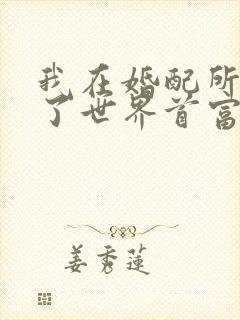 我在婚配所
了世界首富
姜秀莲